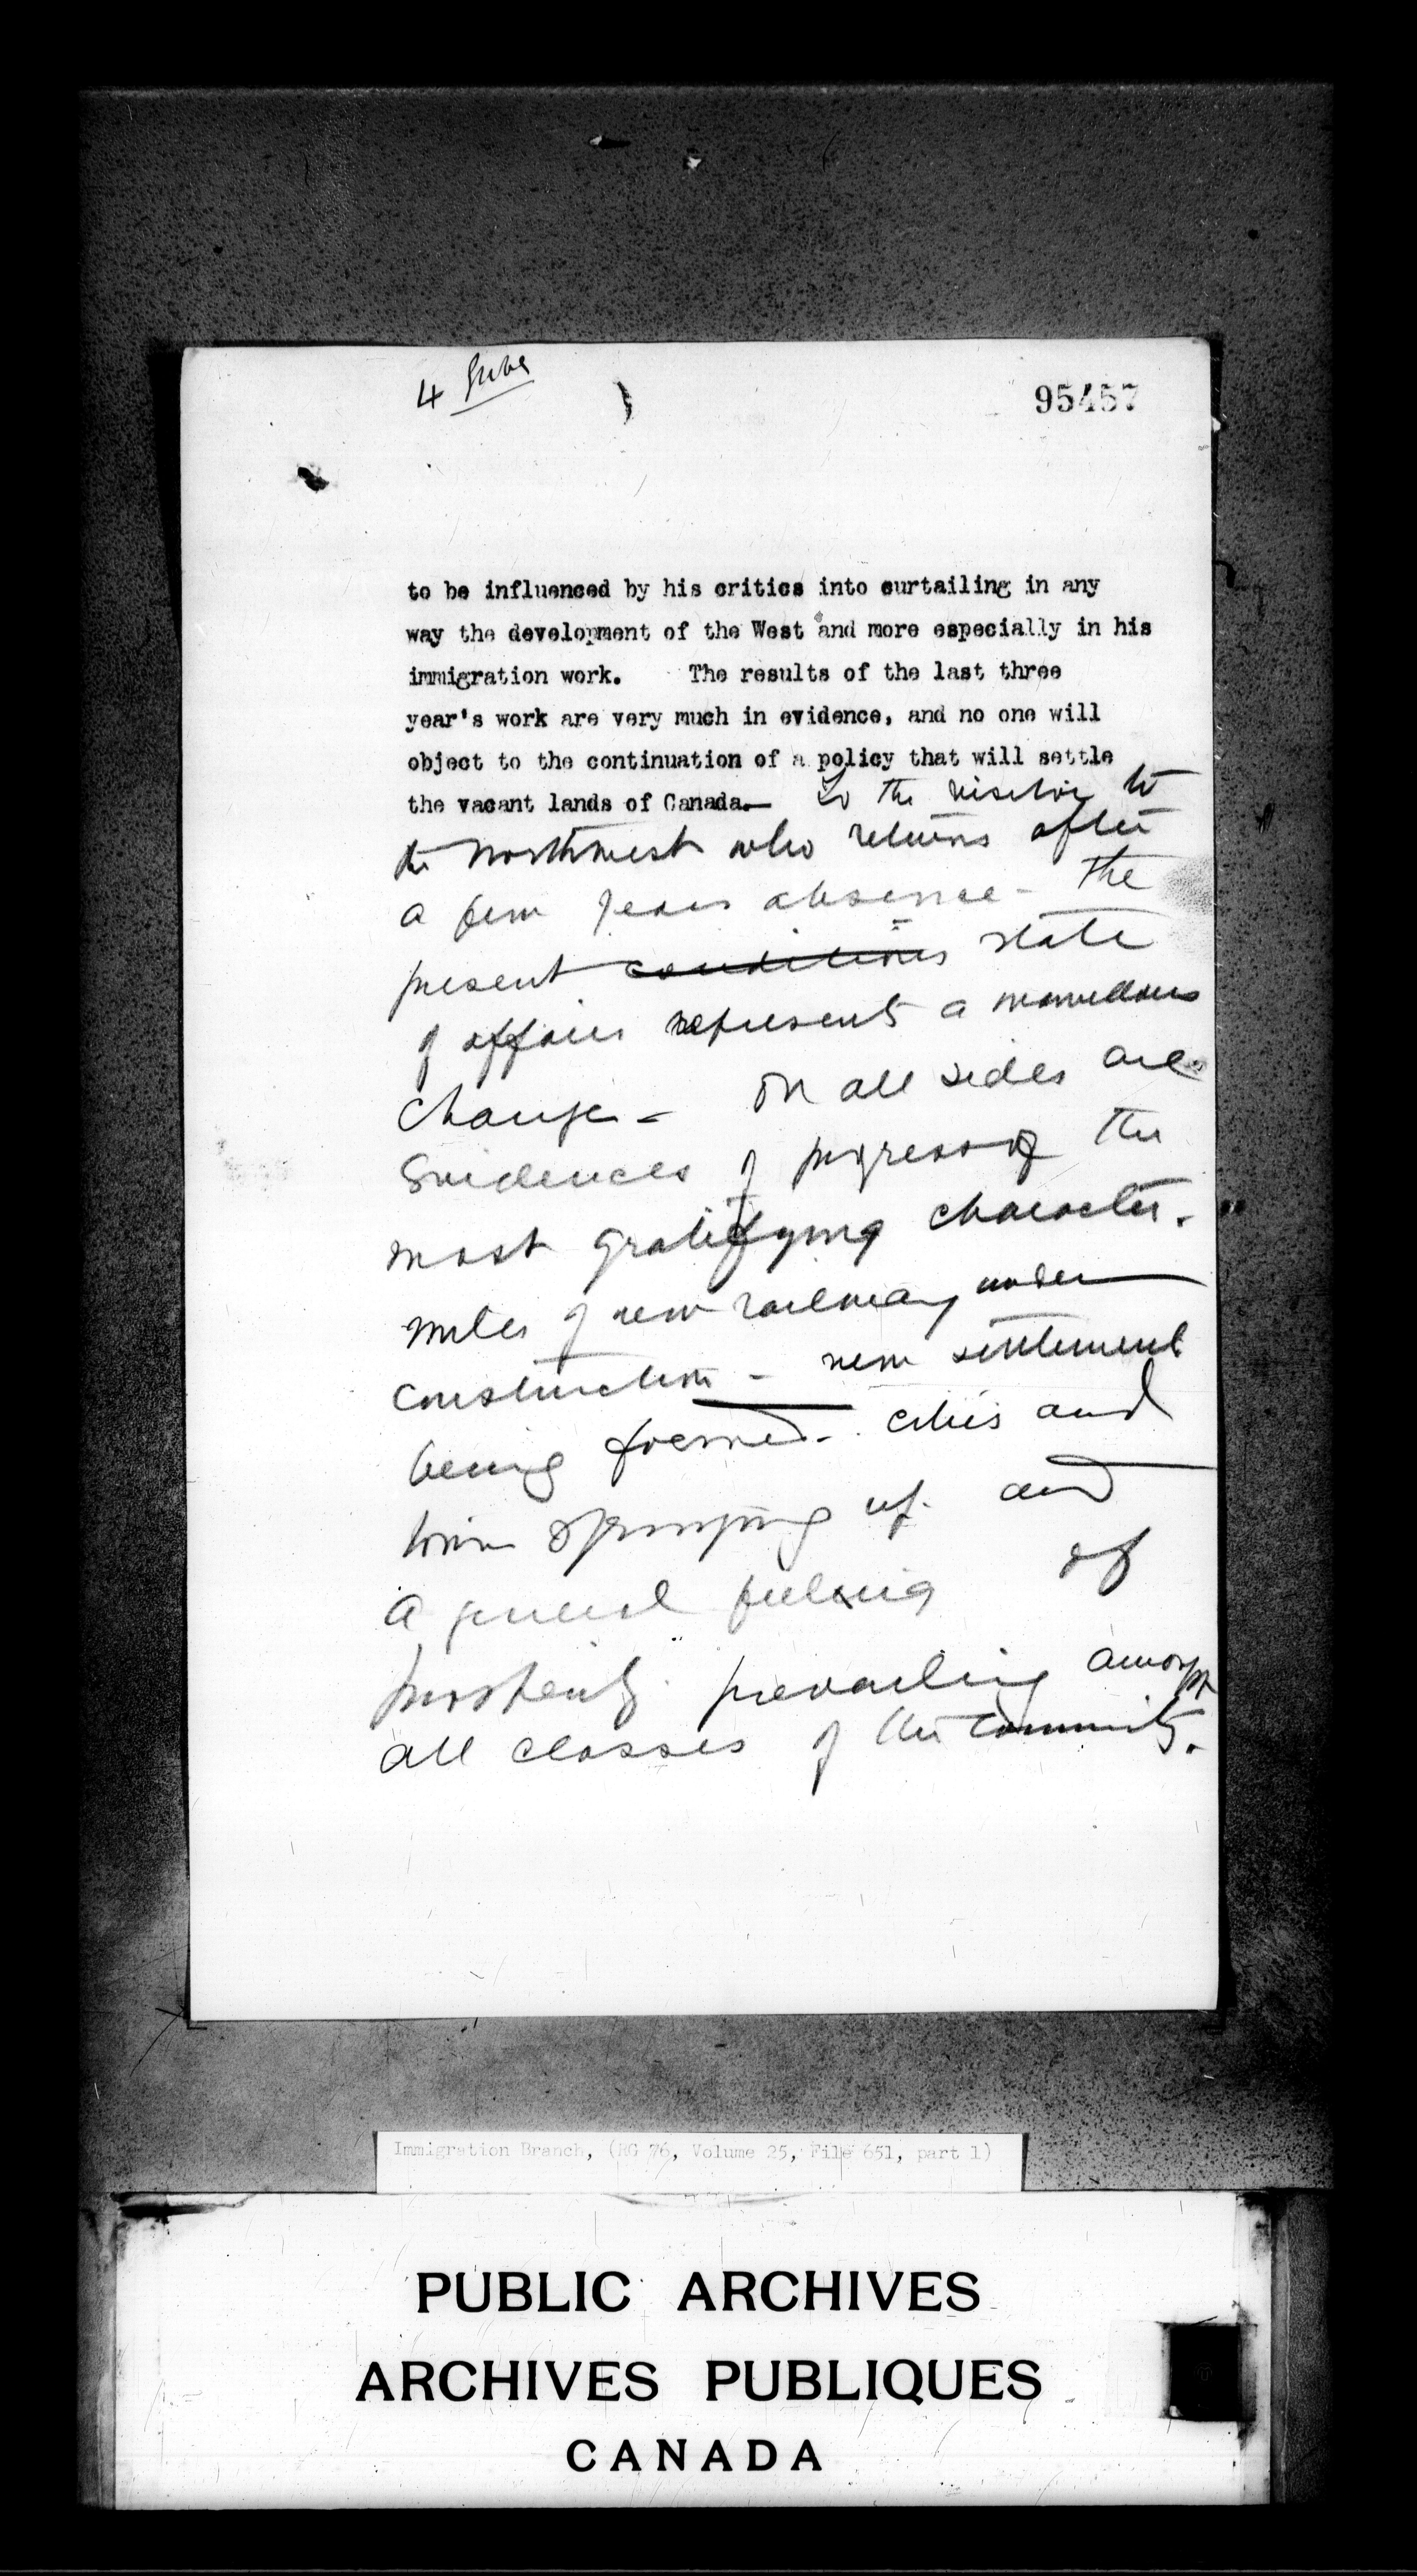 4
95457
to be influenced by his critics into curtailing in any
way the development of the West and more especially in his
immigration work. The results of the last three
year's work are very much in evidence, and no one will
object to the continuation of a policy that will settle
the vacant lands of Canada.— To the visitor to
the Northwest who returns after
a few years absence - the
present conditions state
of affairs represents a marvellous
change - On all sides are
Evidences of progress of the
most gratifying character.
Miles of new railway under
construction - new settlement
being formed - cities and
town springing up. and
a general feeling of
prosperity prevailing amongst
all classes of the community.
Immigration Branch, (RG 76, Volume 25, File 651, part 1)
PUBLIC ARCHIVES
ARCHIVES PUBLIQUES
CANADA